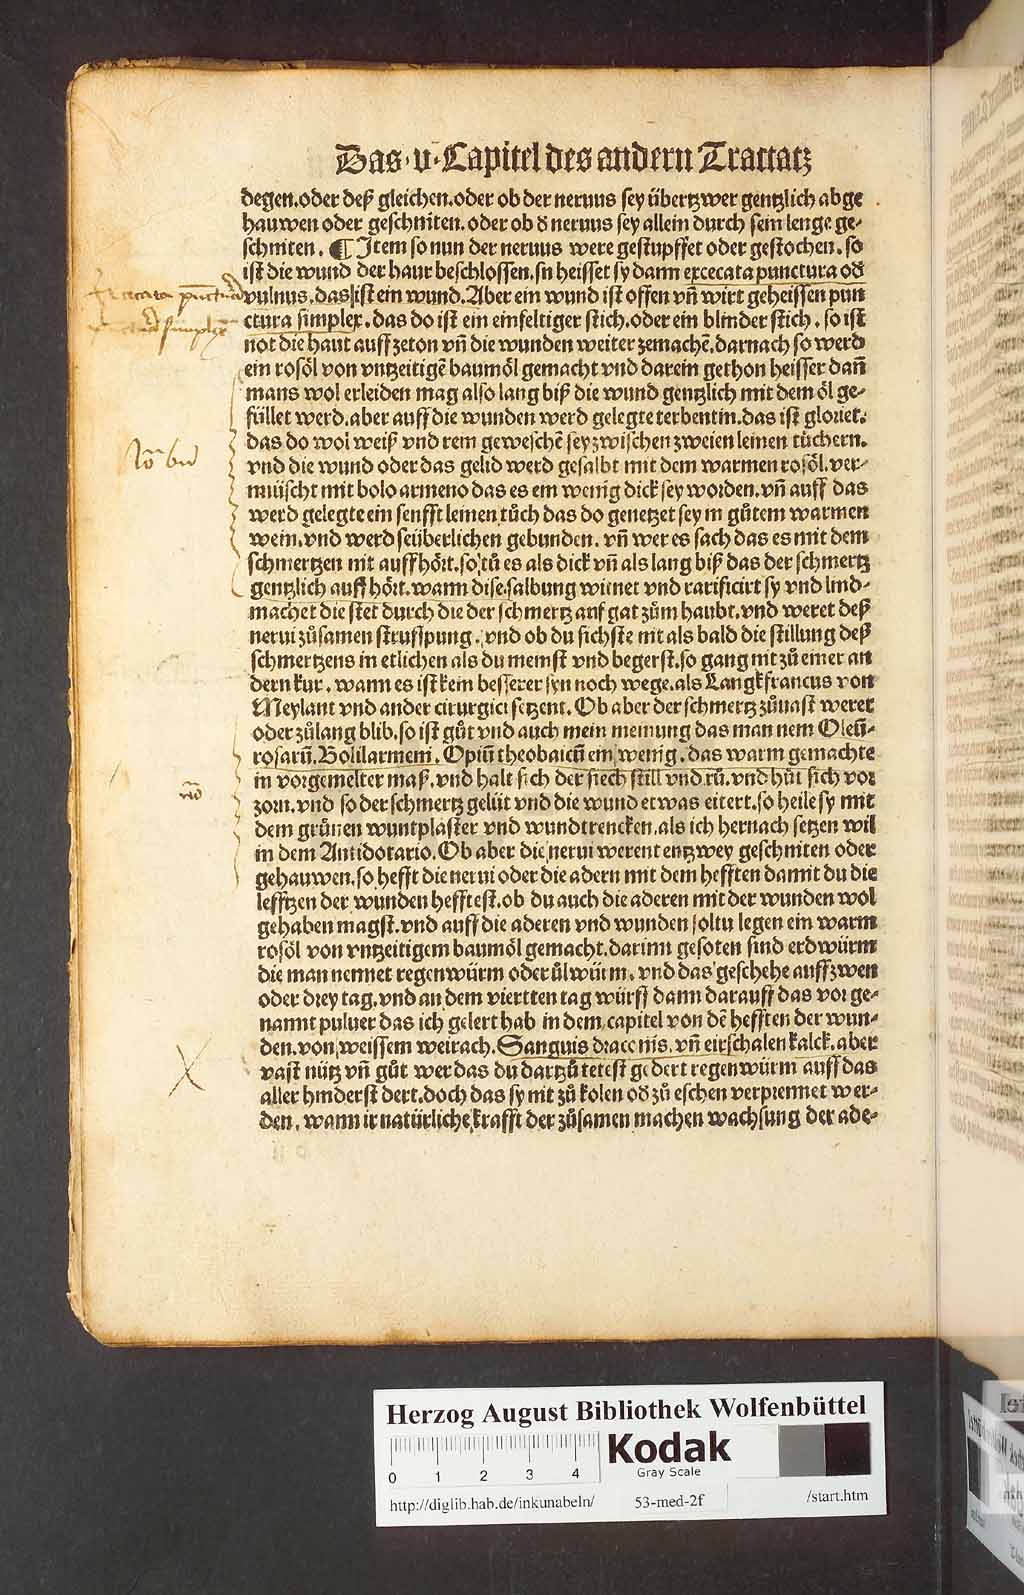 Das ·v· Capitel des andern Tractatz
degen. oder deß gleichen. oder ob der neruus sey übertzwer gentzlich abge
hauwen oder geschniten. oder ob d neruus sey allein durch sein lenge ge-
schniten. ¶ Item so nun der neruus were gestupffet oder gestochen. so
ist die wund der haut beschlossen. sn heisset sy dann excecata punctura od
vulnus. das ist ein wund. Aber ein wund ist offen vñ wirt geheissen pun
ctura simplex. das do ist ein einfeltiger stich. oder ein blinder stich. so ist
not die haut auff zeton vñ die wunden weiter zemachē. darnach so werd
ein rosöl von vntzeitigē baumöl gemacht vnd darein gethon heisser dañ
mans wol erleiden mag also lang biß die wund gentzlich mit dem öl ge-
füllet werd. aber auff die wunden werd gelegte terbentin. das ist gloriet.
das do wol weiß vnd rein geweschē sey zwischen zweien leinen tüchern.
vnd die wund oder das gelid werd gesalbt mit dem warmen rosöl. ver-
müscht mit bolo armeno das es ein wenig dick sey worden. vñ auff das
werd gelegte ein senfft leinen tůch das do genetzet sey in gůtem warmen
wein. vnd werd seüberlichen gebunden. vñ wer es sach das es mit dem
schmertzen nit auffhört. so tů es als dick vñ als lang biß das der schmertz
gentzlich auff hört. wann dise salbung wirnet vnd rarificirt sy vnd lind-
machet die stet durch die der schmertz auf gat zům haubt. vnd weret deß
nerui zůsamen strupfung. vnd ob du sichste nit als bald die stillung deß
schmertzens in etlichen als du meinst vnd begerst. so gang nit zů einer an
dern kur. wann es ist kein besserer syn noch wege. als Langkfrancus von
Meylant vnd ander cirurgici setzent. Ob aber der schmertz zůuast weret
oder zůlang blib. so ist gůt vnd auch mein meinung das man nem Oleū-
rosarū. Boliiarmeni. Opiū theobaicū ein wenig. das warm gemachte
in vorgemelter maß. vnd halt sich der siech still vnd rů. vnd hůt sich vor
zorn. vnd so der schmertz geliit vnd die wund etwas eitert. so heile sy mit
dem grünen wuntplaster vnd wundtrencken. als ich hernach setzen wil
in dem Antidotario. Ob aber die nerui werent entzwey geschniten oder
gehauwen. so hefft die nerui oder die adern mit dem hefften damit du die
lefftzen der wunden hefftest. ob du auch die aderen mit der wunden wol
gehaben magst. vnd auff die aderen vnd wunden soltu legen ein warm
rosöl von vntzeitigem baumöl gemacht. darinn gesoten sind erdwürm
die man nennet regenwürm oder ůlwürm. vnd das geschehe auff zwen
oder drey tag. vnd an dem viertten tag würff dann darauff das vor ge-
nannt puluer das ich gelert hab in dem capitel von dē hefften der wun-
den. von weissem weirach. Sanguis draconis. vñ eirschalen kalck. aber
vast nütz vñ gůt wer das du dartzů tetest gedert regenwürm auff das
aller hinderst dert. doch das sy nit zů kolen od zů eschen verprennet wer-
den. wann ir natürliche krafft der zůsamen machen wachsung der ade-
Herzog August Bibliothek Wolfenbüttel
0 1 2 3 4
Kodak
Gray Scale
http://diglib.hab.de/inkunabeln/ 53-med-2f /start.htm